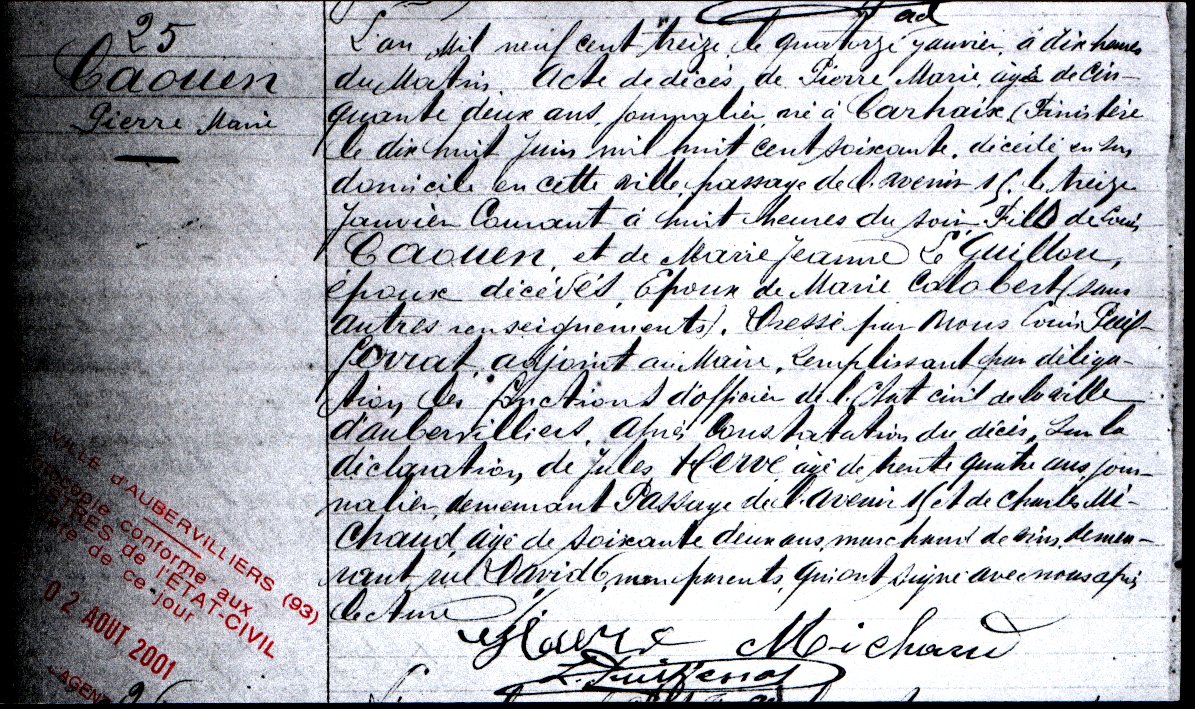 25
Caouen
Pierre Marie
L'an mil neuf cent treize le quatorze janvier, à dix heures
du Matin. Acte de décès de Pierre Marie, âgé de cin-
quante deux ans, journalier, né à Carhaix (Finistère
le dix huit Juin mil huit cent soixante, décédé en son
domicile en cette ville, passage de l'avenir 15, le treize
Janvier Courant à huit heures du soir. Fils de Louis
CAOUEN, et de Marie Jeanne Le Guillou,
époux décédés, Epoux de Marie Calobert (sans
autres renseignements). Dressé par Nous Louis Puif-
ferrat, adjoint au Maire, remplissant par déléga-
tion les fonctions d'officier de l'Etat civil de la ville
d'aubervilliers. Après Constatation du décès, sur la
déclaration de Jules HERVÉ, âgé de trente quatre ans, jour-
nalier, demeurant Passage de l'avenir 15 et de Charles Mi-
chaud, âgé de soixante deux ans, marchand de vins, demeu-
rant rue David 6, non parents, qui ont signé avec nous après
lecture
Hervé Michaud
L. Puifferrat
VILLE d'AUBERVILLIERS (93)
conforme aux
de l'ÉTAT-CIVIL
de ce jour
02 AOUT 2001
L'AGENT
26